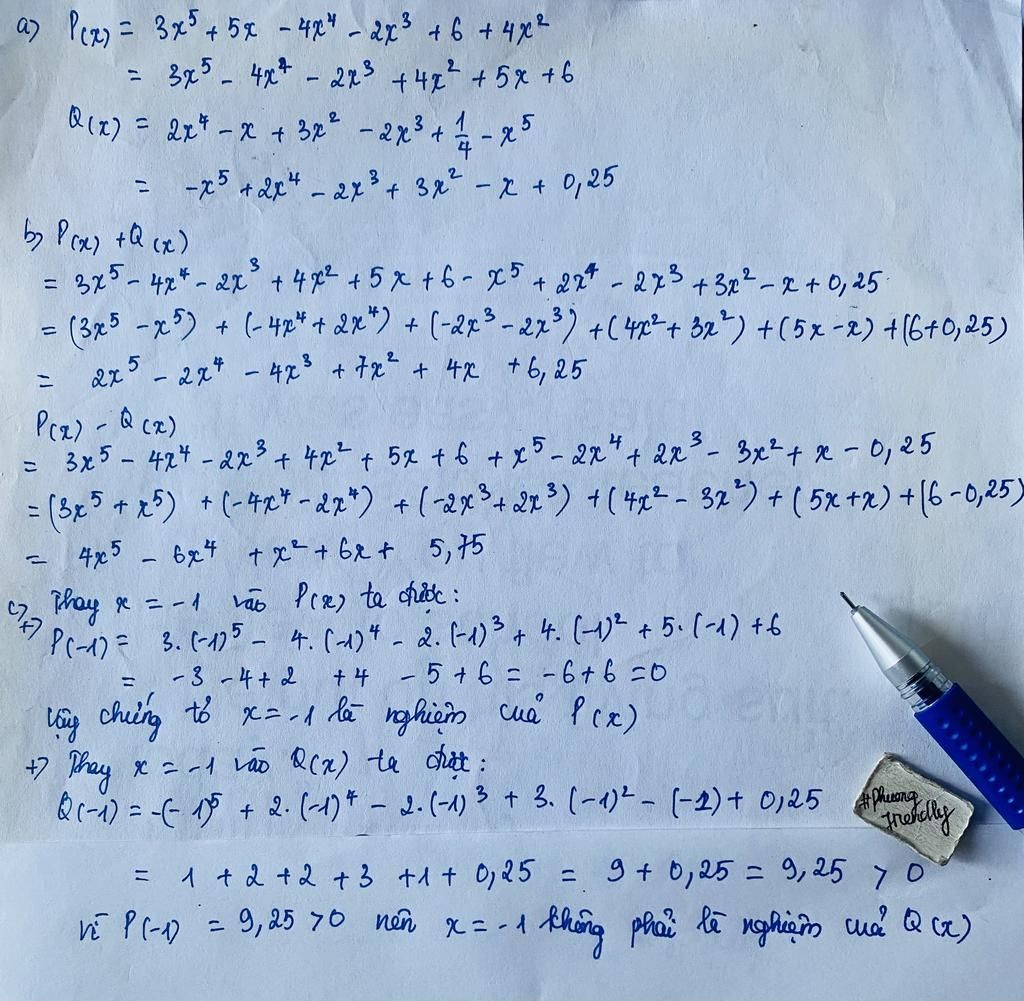 a) P(x) = 3x⁵ + 5x - 4x⁴ - 2x³ + 6 + 4x²
= 3x⁵ - 4x⁴ - 2x³ + 4x² + 5x + 6
Q(x) = 2x⁴ - x + 3x² - 2x³ + 1/4 - x⁵
= -x⁵ + 2x⁴ - 2x³ + 3x² - x + 0,25
b) P(x) + Q(x)
= 3x⁵ - 4x⁴ - 2x³ + 4x² + 5x + 6 - x⁵ + 2x⁴ - 2x³ + 3x² - x + 0,25
= (3x⁵ - x⁵) + (-4x⁴ + 2x⁴) + (-2x³ - 2x³) + (4x² + 3x²) + (5x - x) + (6 + 0,25)
= 2x⁵ - 2x⁴ - 4x³ + 7x² + 4x + 6,25
P(x) - Q(x)
= 3x⁵ - 4x⁴ - 2x³ + 4x² + 5x + 6 + x⁵ - 2x⁴ + 2x³ - 3x² + x - 0,25
= (3x⁵ + x⁵) + (-4x⁴ - 2x⁴) + (-2x³ + 2x³) + (4x² - 3x²) + (5x + x) + (6 - 0,25)
= 4x⁵ - 6x⁴ + x² + 6x + 5,75
c) +) Thay x = -1 vào P(x) ta được:
P(-1) = 3.(-1)⁵ - 4.(-1)⁴ - 2.(-1)³ + 4.(-1)² + 5.(-1) + 6
= -3 - 4 + 2 + 4 - 5 + 6 = -6 + 6 = 0
Vậy chứng tỏ x = -1 là nghiệm của P(x)
+) Thay x = -1 vào Q(x) ta được:
Q(-1) = -(-1)⁵ + 2.(-1)⁴ - 2.(-1)³ + 3.(-1)² - (-1) + 0,25
#Phuong
Friendly
= 1 + 2 + 2 + 3 + 1 + 0,25 = 9 + 0,25 = 9,25 > 0
Vì P(-1) = 9,25 > 0 nên x = -1 không phải là nghiệm của Q(x)